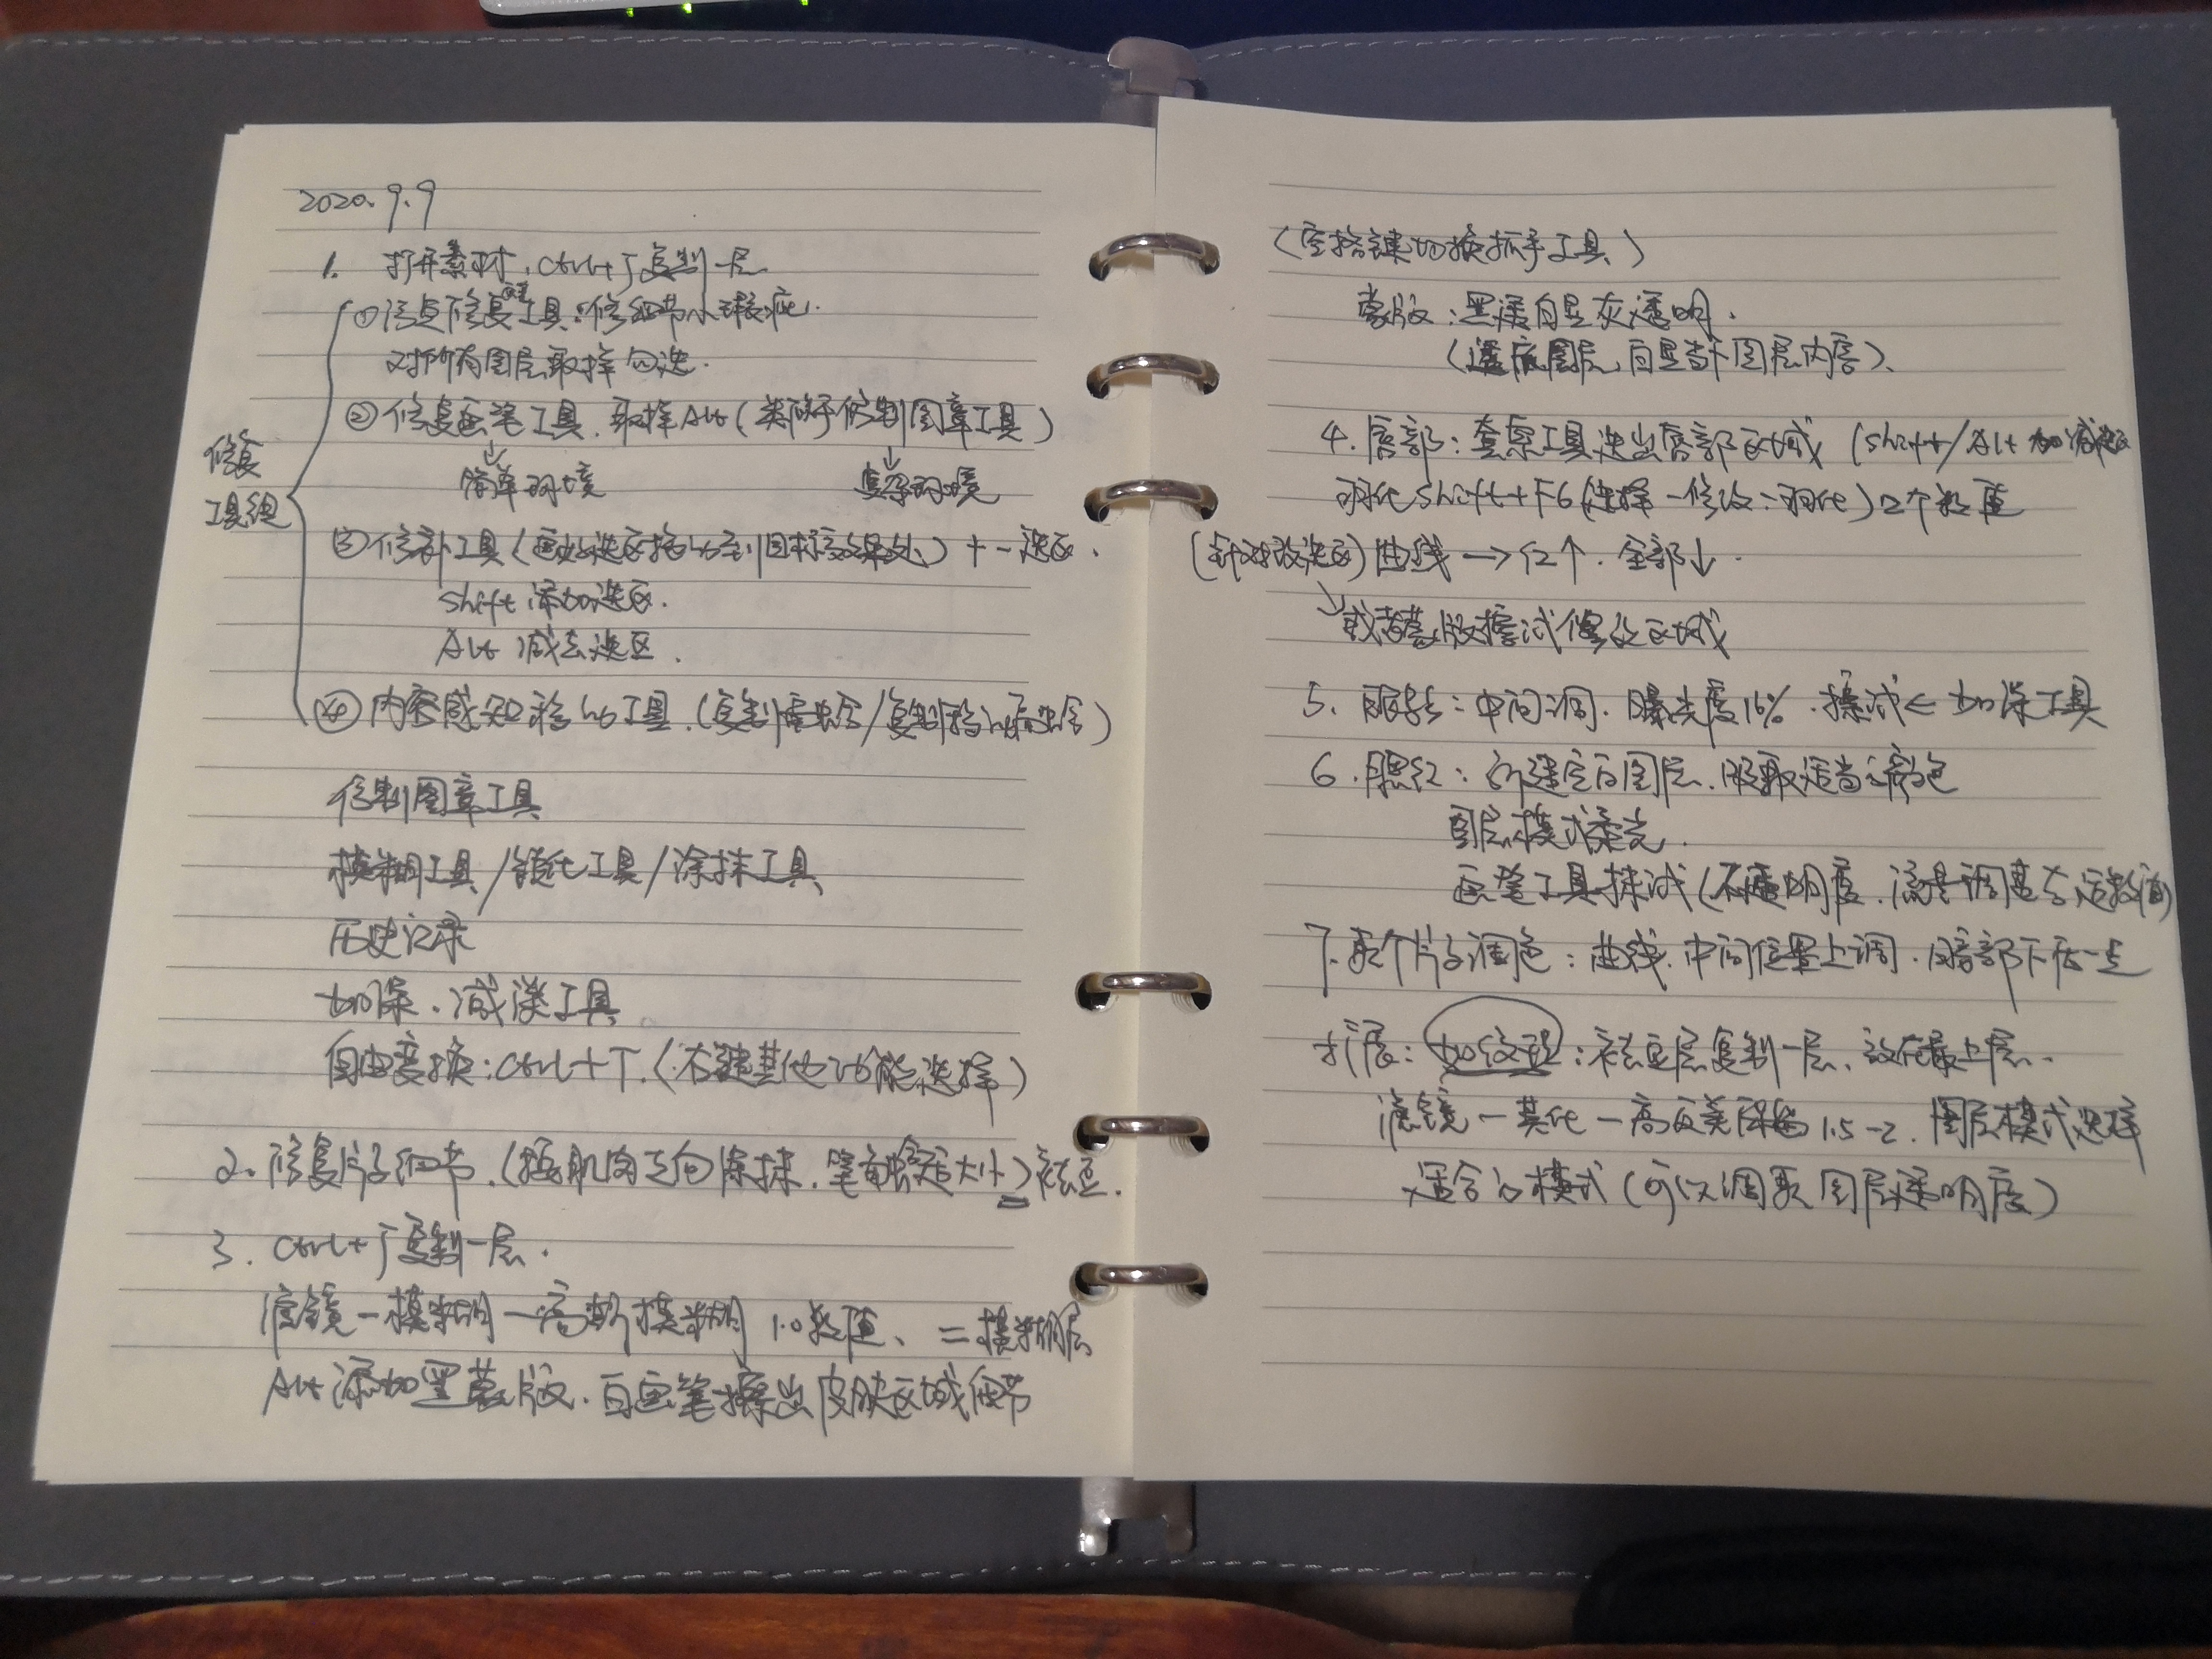 2020.9.9
1. 打开素材，Ctrl+J复制一层
修复
工具组
①污点修复画笔工具：修细节小瑕疵.
对所有图层取样勾选.
②修复画笔工具.取样Alt(类似于仿制图章工具)
↓简单环境 ↓复杂环境
③修补工具(画好选区拖动到目标效果处)+-选区.
Shift 添加选区.
Alt 减去选区.
④内容感知移动工具.(复制重融合/复制移动融合)
仿制图章工具
模糊工具/锐化工具/涂抹工具
历史记录
加深.减淡工具
自由变换:Ctrl+T.(右键其他功能选择)
2.修复片子细节.(按肌肉走向涂抹.笔触合适大小)祛豆.
3. Ctrl+J复制一层.
滤镜-模糊-高斯模糊 10数值、=模糊层
Alt添加黑蒙版.白画笔擦出皮肤区域细节
(空格键切换抓手工具)
蒙版:黑透白显灰透明.
(透底图层,白显当下图层内容).
4.唇部:套索工具选出唇部区域 (Shift/Alt 加减选区
羽化Shift+F6(选择-修改-羽化)2个数值
(针对该选区)曲线→红↑.全部↓.
↘或者蒙版擦拭修改区域
5. 中间调.曝光度16%.擦拭←加深工具
6.腮红:新建空白图层.吸取适当颜色
图层模式柔光.
画笔工具抹试(不透明度.流量调整合适数值)
7.整个片子调色:曲线.中间位置上调.暗部下压一点
扩展:加纹理:祛豆层复制一层.放在最上层.
滤镜-其他-高反差保留1.5-2.图层模式选择
适合的模式(可以调整图层透明度)